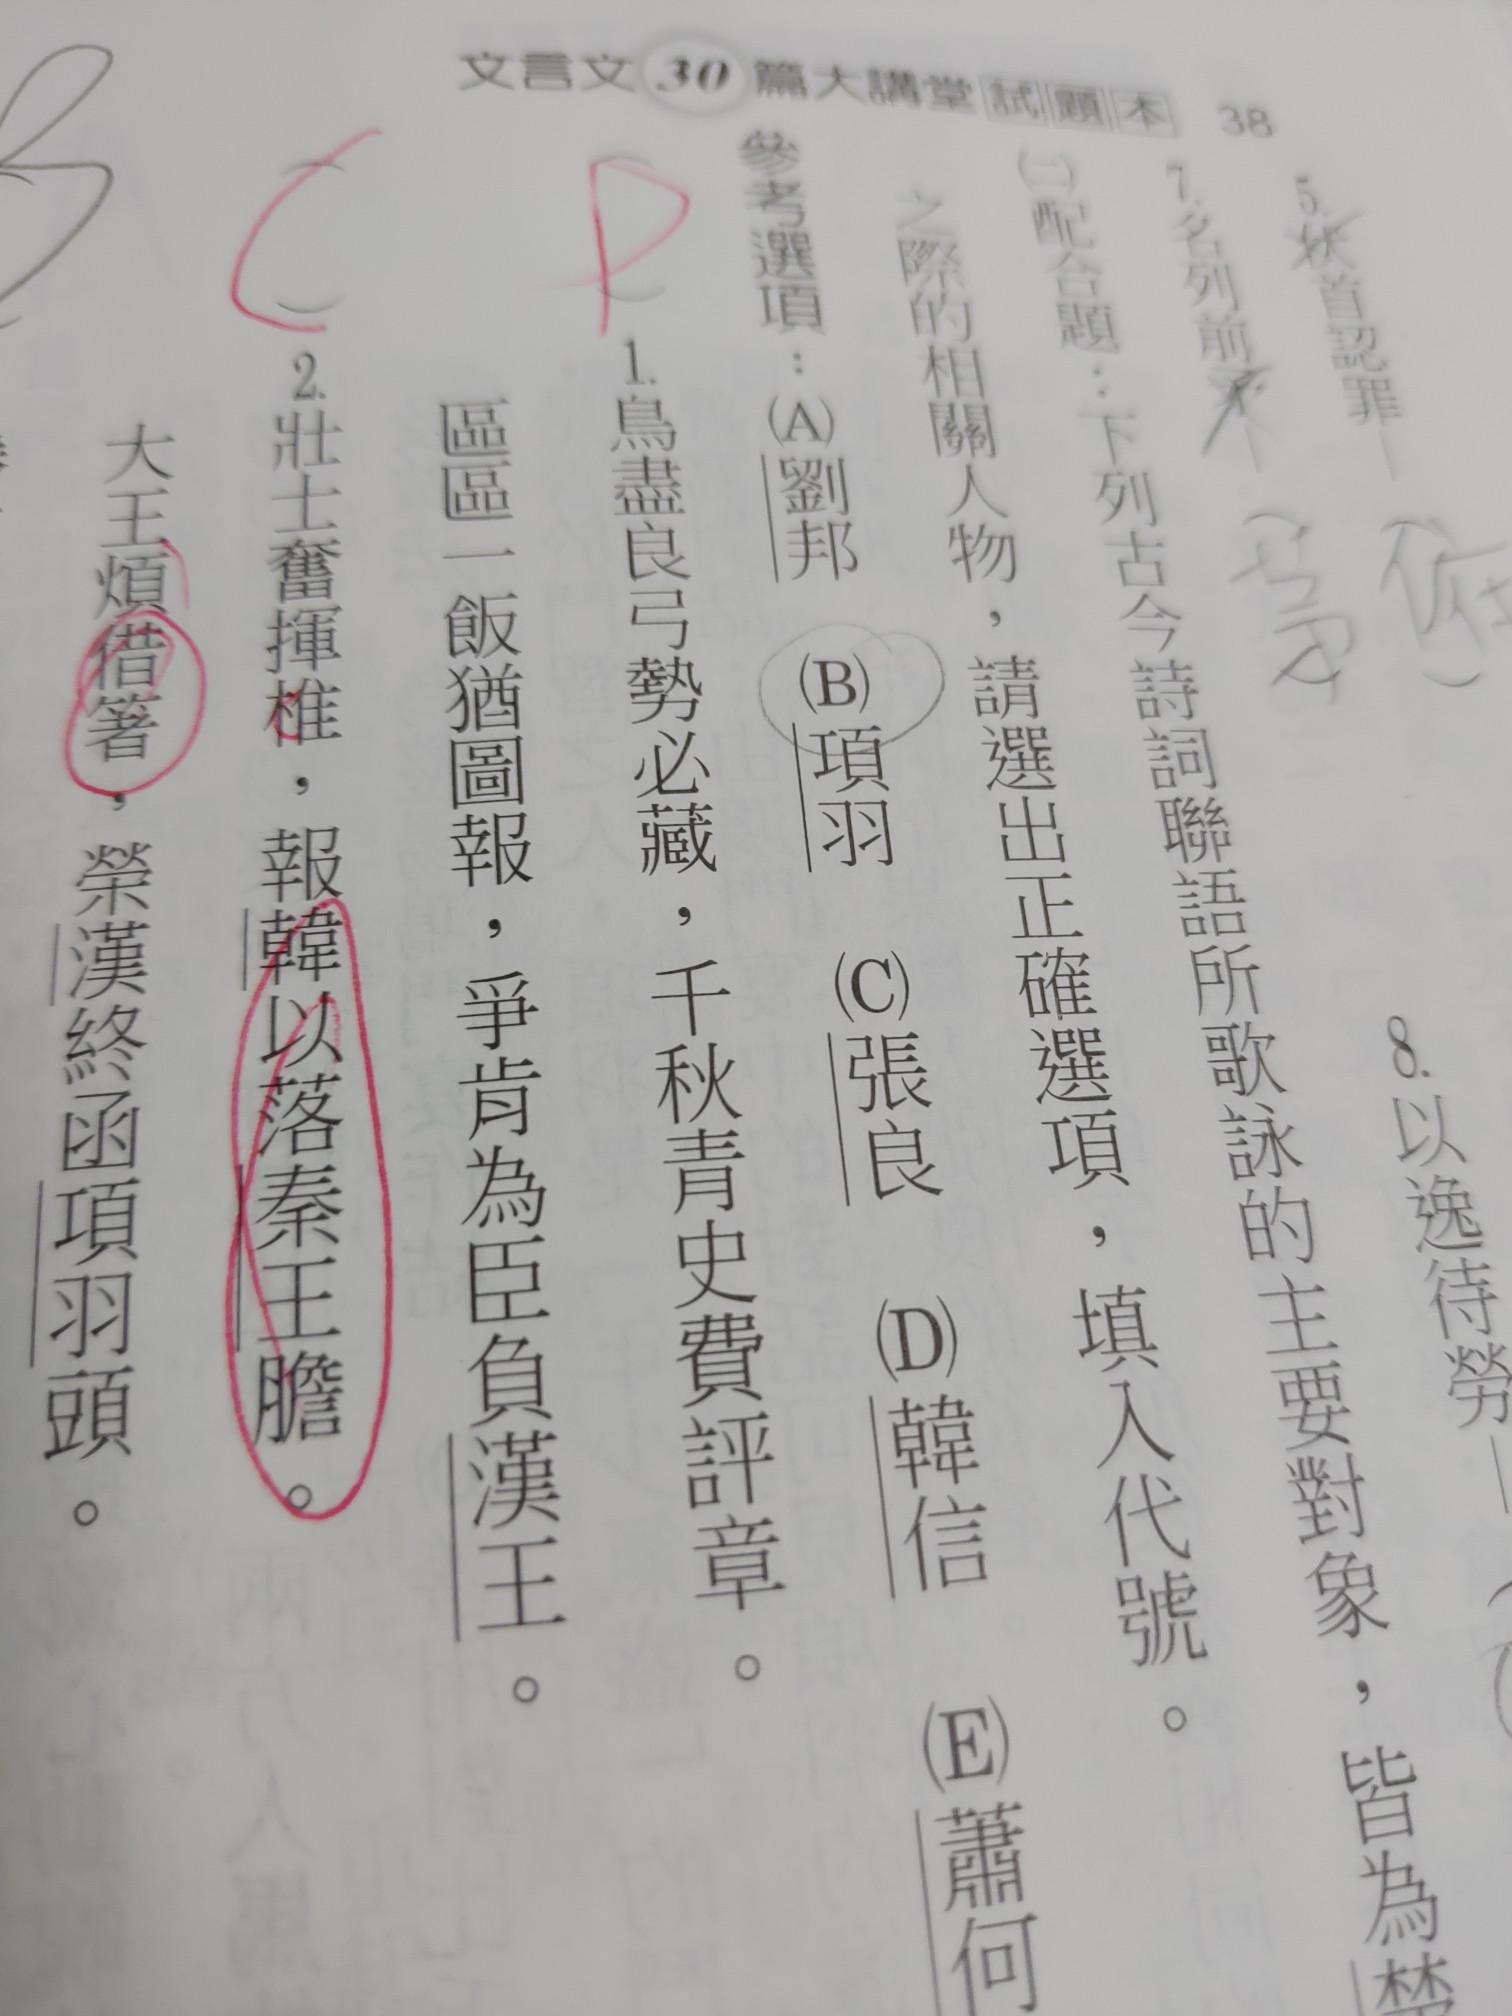 文言文30篇大講堂試題本 38
5.狀首認罪—
(低)
8.以逸待勞—
7.名列前矛—
(茅)
(二)配合題：下列古今詩詞聯語所歌詠的主要對象，皆為楚
之際的相關人物，請選出正確選項，填入代號。
參考選項：(A)劉邦 (B)項羽 (C)張良 (D)韓信 (E)蕭何
D
1.鳥盡良弓勢必藏，千秋青史費評章。
區區一飯猶圖報，爭肯為臣負漢王。
C
2.壯士奮揮椎，報韓以落秦王膽。
大王煩借箸，榮漢終函項羽頭。
B